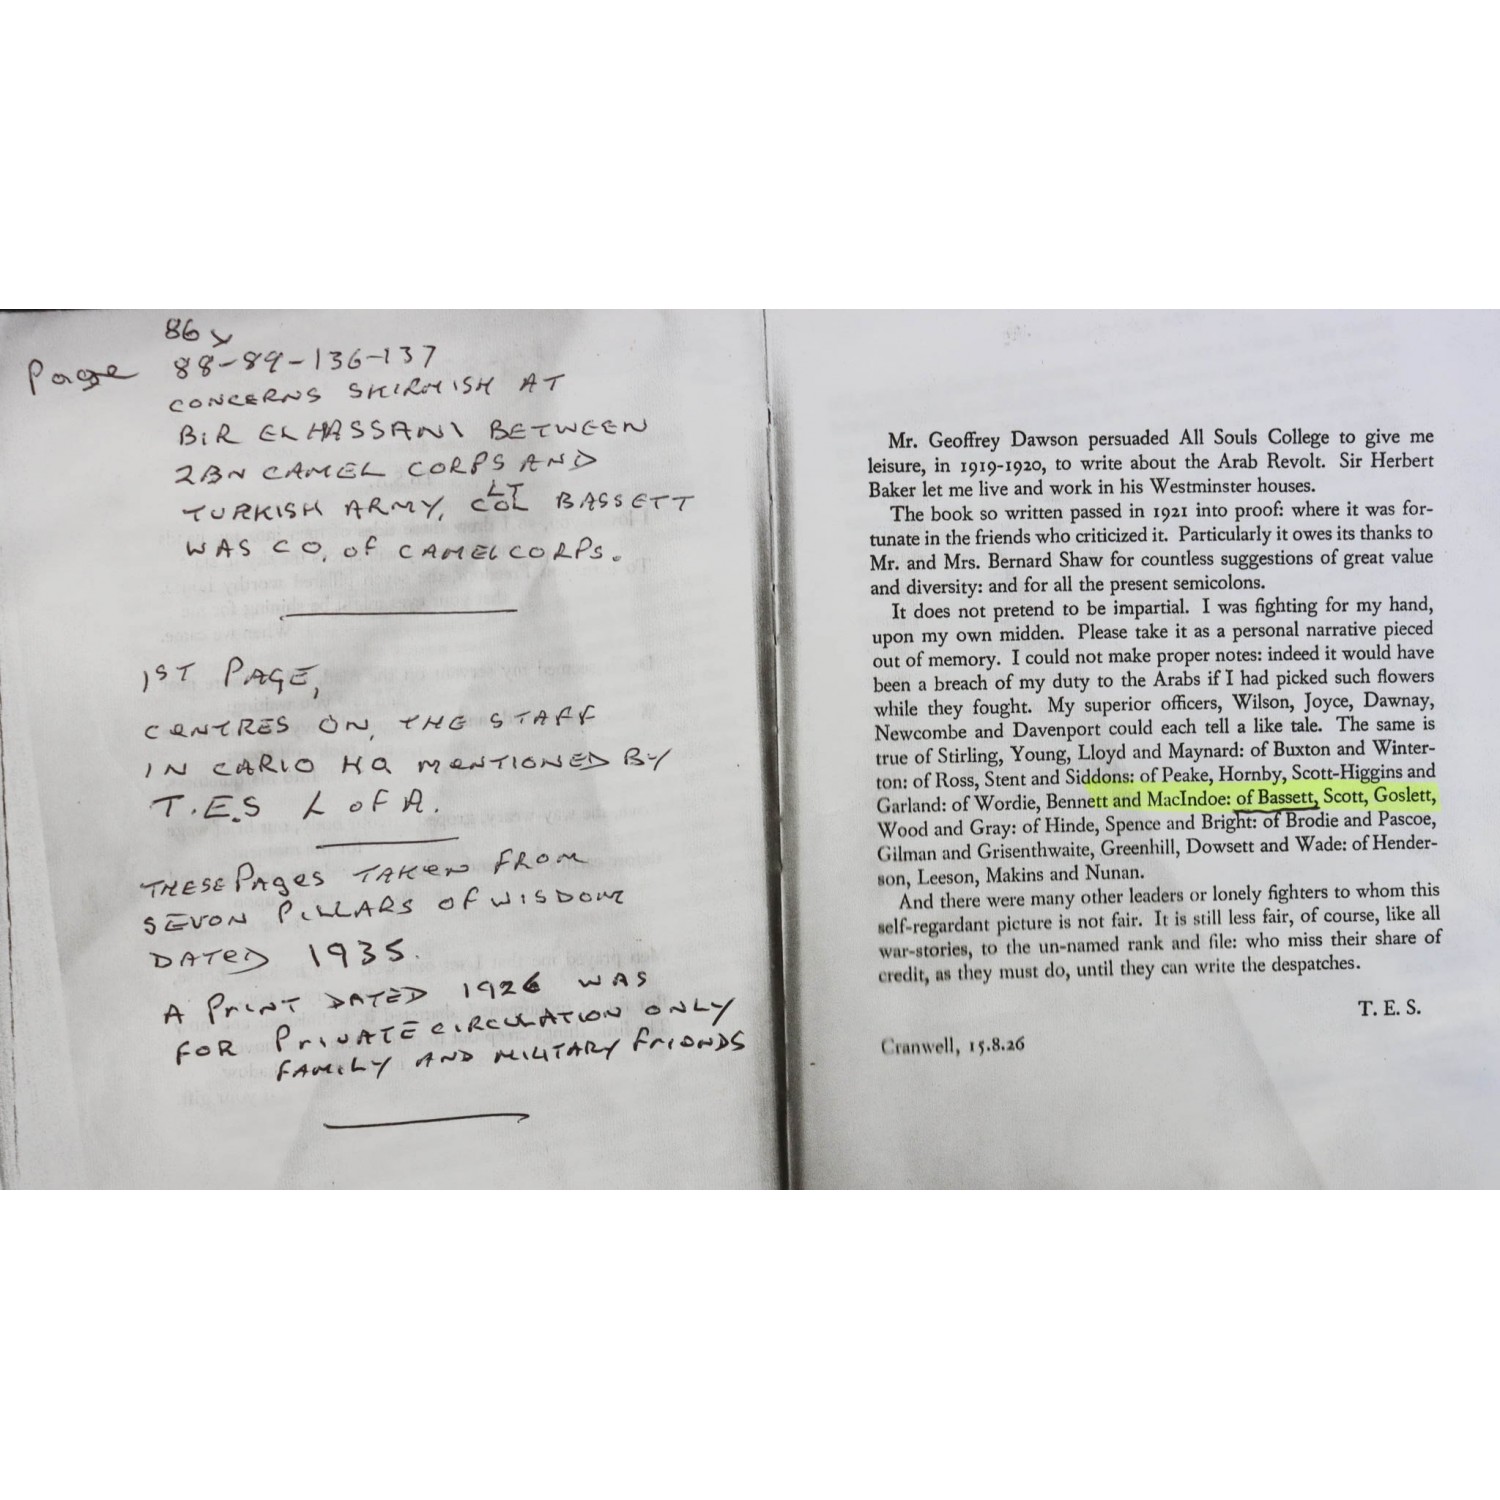 86 y
Page 88-89-136-137
CONCERNS SKIRMISH AT
BIR EL HASSANI BETWEEN
2BN CAMEL CORPS AND
TURKISH ARMY, LT COL BASSETT
WAS CO, OF CAMEL CORPS.
1ST PAGE,
CENTRES ON, THE STAFF
IN CARIO HQ MENTIONED BY
T.E.S L OF A.
THESE PAGES TAKEN FROM
SEVON PILLARS OF WISDOM
DATED 1935.
A PRINT DATED 1926 WAS
FOR PRIVATE CIRCULATION ONLY
FAMILY AND MILITARY FRIONDS
Mr. Geoffrey Dawson persuaded All Souls College to give me
leisure, in 1919-1920, to write about the Arab Revolt. Sir Herbert
Baker let me live and work in his Westminster houses.
The book so written passed in 1921 into proof: where it was for-
tunate in the friends who criticized it. Particularly it owes its thanks to
Mr. and Mrs. Bernard Shaw for countless suggestions of great value
and diversity: and for all the present semicolons.
It does not pretend to be impartial. I was fighting for my hand,
upon my own midden. Please take it as a personal narrative pieced
out of memory. I could not make proper notes: indeed it would have
been a breach of my duty to the Arabs if I had picked such flowers
while they fought. My superior officers, Wilson, Joyce, Dawnay,
Newcombe and Davenport could each tell a like tale. The same is
true of Stirling, Young, Lloyd and Maynard: of Buxton and Winter-
ton: of Ross, Stent and Siddons: of Peake, Hornby, Scott-Higgins and
Garland: of Wordie, Bennett and MacIndoe: of Bassett, Scott, Goslett,
Wood and Gray: of Hinde, Spence and Bright: of Brodie and Pascoe,
Gilman and Grisenthwaite, Greenhill, Dowsett and Wade: of Hender-
son, Leeson, Makins and Nunan.
And there were many other leaders or lonely fighters to whom this
self-regardant picture is not fair. It is still less fair, of course, like all
war-stories, to the un-named rank and file: who miss their share of
credit, as they must do, until they can write the despatches.
T. E. S.
Cranwell, 15.8.26